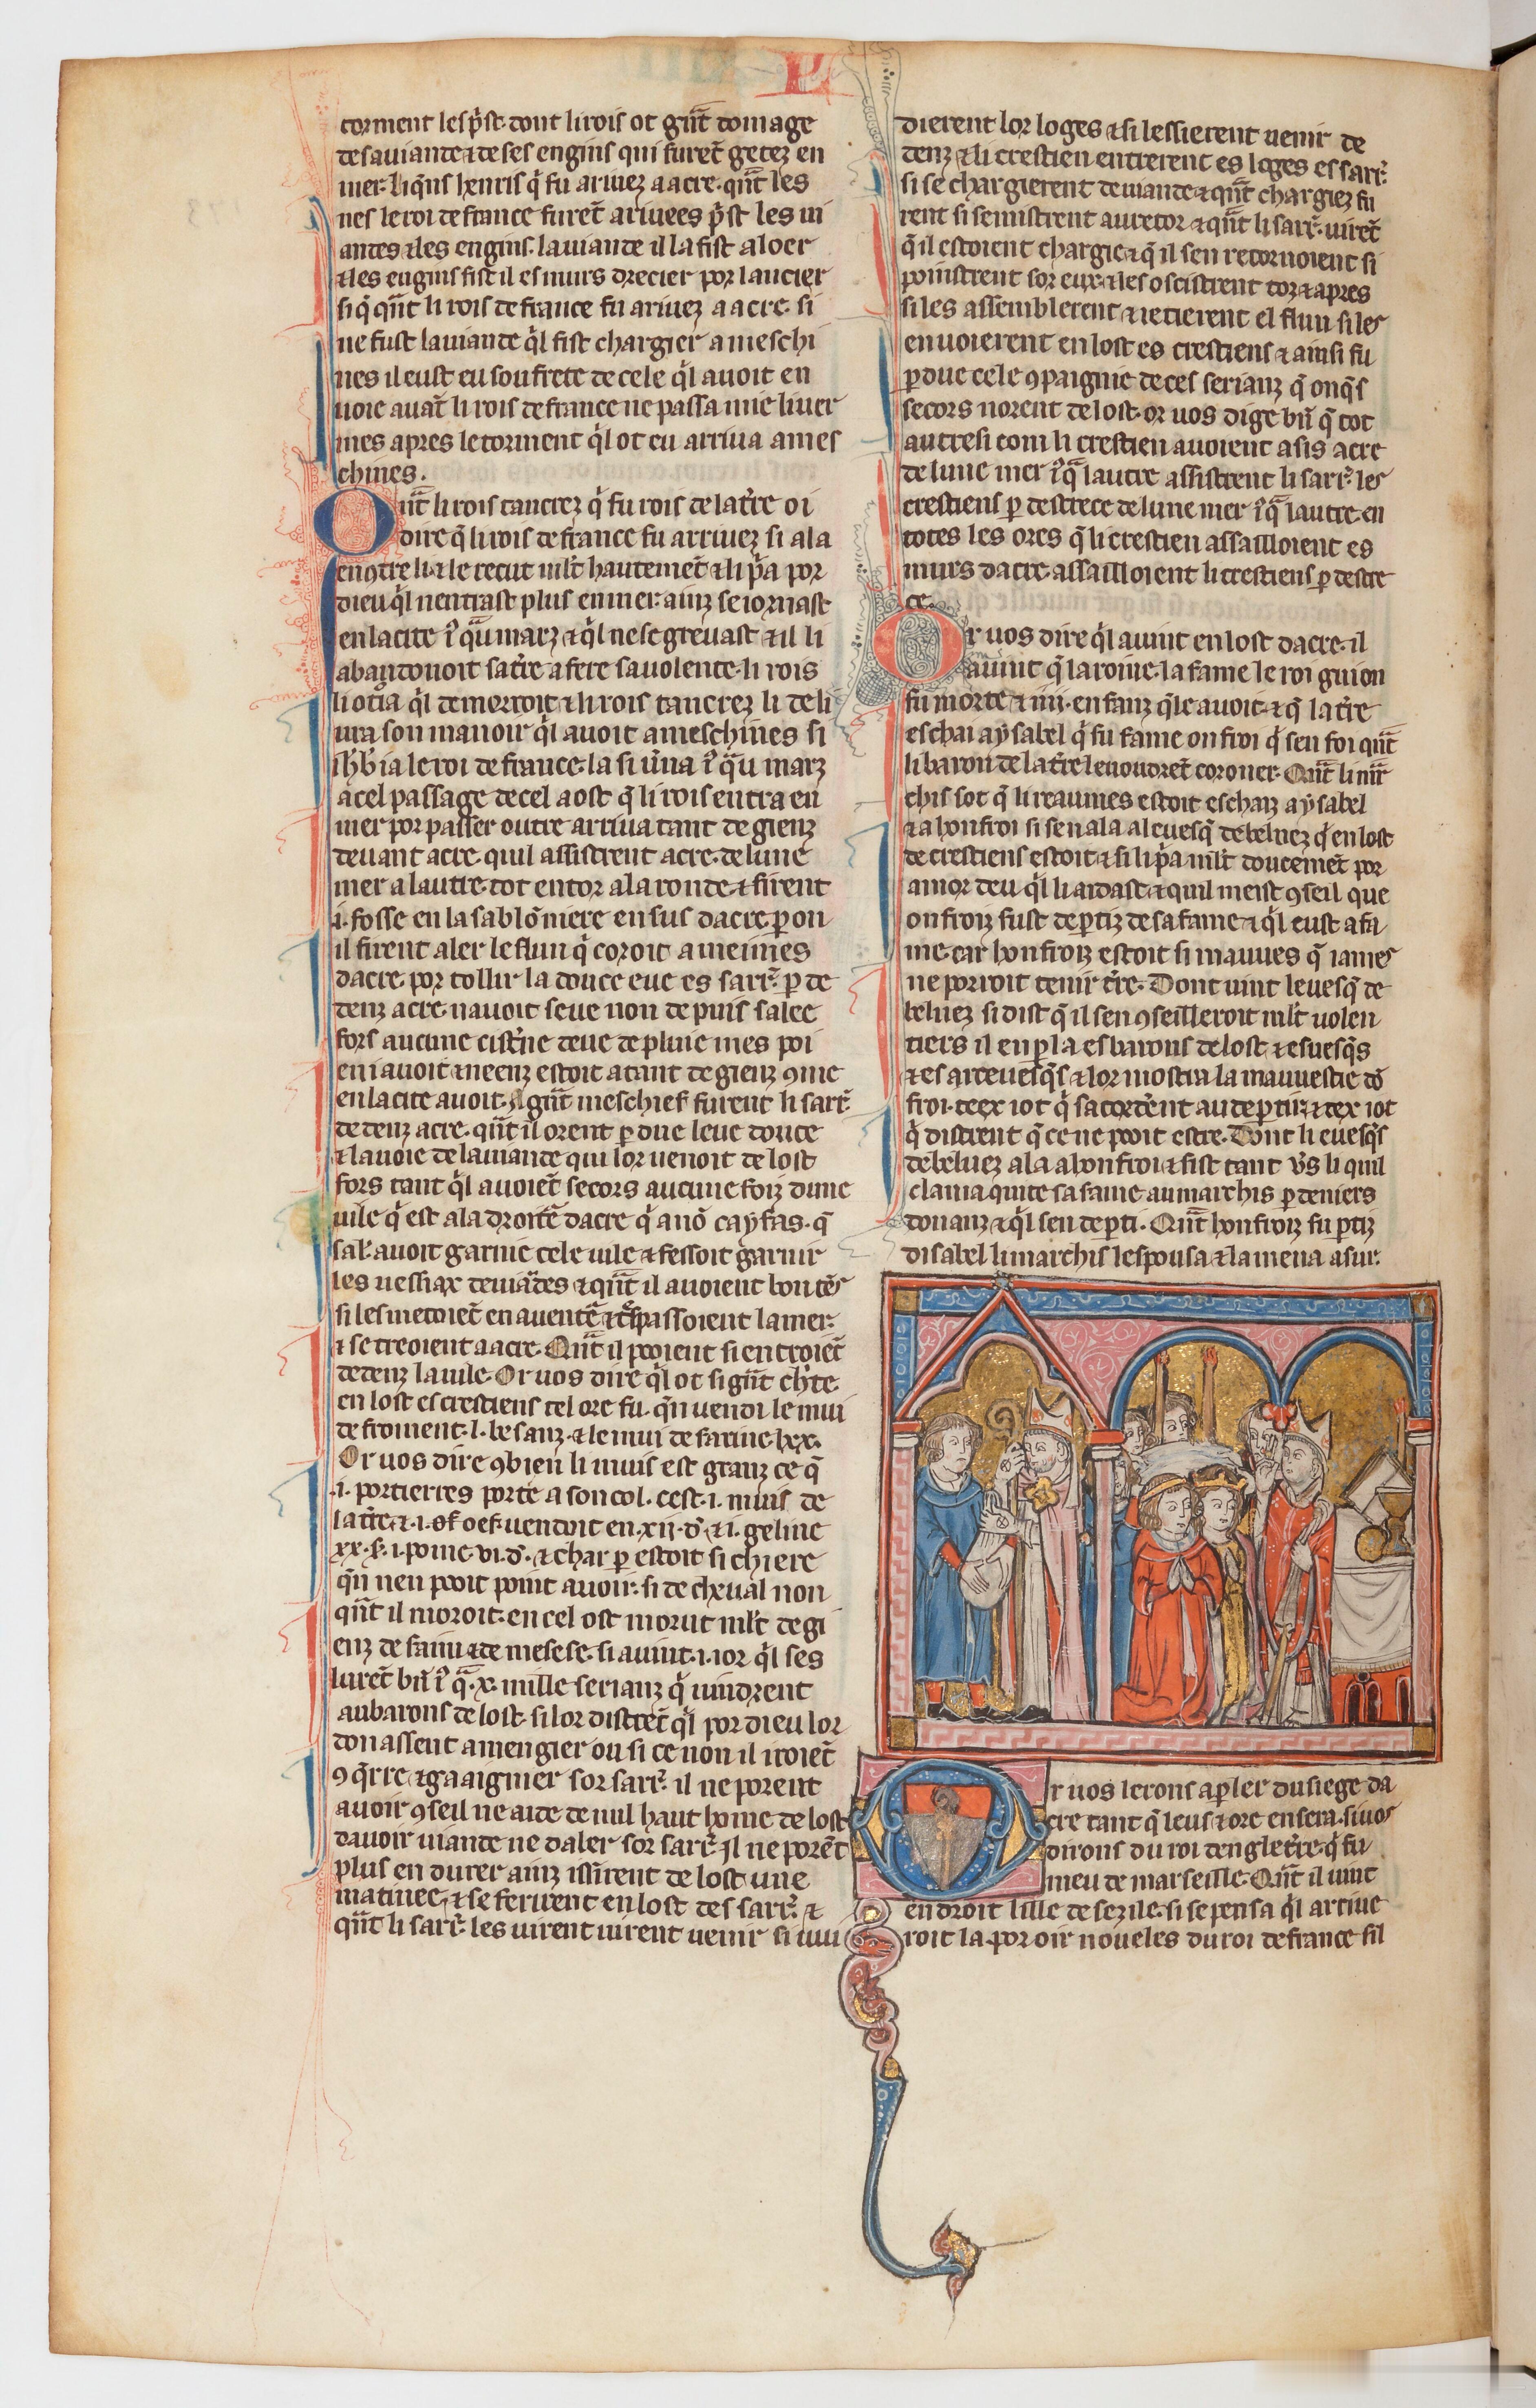 torment lesp̃st. dont li rois ot gñt domage
de sa uiande ⁊ de ses engins qui furet̃ getez en
mer. li q̃ns henris q̃ fu ariuez a acre. qñt les
nes le roi de france furet̃ ariuees p̃st les ui
andes ⁊ les engins. la uiande il la fist aloer
⁊ les engins fist il es murs drecier por lancier
si q̃ qñt li rois de france fu ariuez a acre. si
ne fust la uiande q̃l fist chargier a meschi
nes il eust eu soufrete de cele q̃l auoit en
uoie auãt li rois de france ne passa mie liuer
mes apres le torment q̃l ot eu arriua a mes
chines.
Qñt li rois tancrez q̃ fu rois de lat̃re oi
dire q̃ li rois de france fu arriuez si ala
enꝯtre li. ⁊ le recut ml̃t hautemet̃ ⁊ li p̃a por
dieu q̃l nentrast plus en mer. ainz seiornast
en la cite i̾ q̃u marz ⁊ q̃l ne se greuast ⁊ il li
abandonoit sat̃re a fere sa uolente. li rois
li ot̃ia q̃l demorroit ⁊ li rois tancrez li deli
ura son manoir q̃l auoit a meschines si
h̃b̃ia le roi de france. la si u̾na i̾ q̃u marz
a cel passage de cel aost q̃ li rois entra en
mer por passer outre arriua tant de gienz
deuant acre. quil assistrent acre. de lune
mer a lautre. tot entor a la ronde ⁊ firent
.i. fosse en la sablõniere en sus dacre. ꝑ on
il firent aler le flun q̃ coroit a meimes
dacre. por tollir la douce eue es sarr̃. ꝑ de
denz acre. nauoit seue non de puis salee
fors aucune cist̃ne deue de pluie mes poi
en i auoit ⁊ neenz estoit atant de gienz ꝯme
en la cite auoit. A gñt meschief furent li sarr̃.
dedenz acre. qñt il orent ꝑdue leue douce
⁊ la uoie de la uiande qui lor uenoit de lost
fors tant q̃l auoiet̃ secors aucune foiz dune
uile q̃ est a la droitẽ dacre q̃ a nõ cayfas. q̃
sal̃. auoit garnie cele uile ⁊ fessoit garnir
les uessiax deuiãdes ⁊ qñt il auoient bon tẽs
si les metoiet̃ en auentẽ ⁊ t̃spassoient la mer.
⁊ se treoient a acre. Qñt il pooient si entroiet̃
dedenz la uile. Or uos dire q̃l ot si gñt ch̾te.
en lost es crestiens tel ore fu. q̃n uendi le mui
de froment .l. besanz. ⁊ le mui de farine .lxx.
Or uos dire ꝯbien li muis est granz ce q̃
.i. portierres porte a son col. cest .i. muis de
lat̃re ⁊ .i. of oef uendoit en .xij. d̾. ⁊ .i. geline
.xx. s̃. .i. pome .vi. d̾. ⁊ char ꝑ estoit si chiere
q̃n nen pooit point auoir. si de cheual non
qñt il moroit. en cel ost morut ml̃t de gi
enz de faim ⁊ de mesese. si auint .i. ior q̃l ses
luret̃ bñ i̾ q̃ .x. mille serianz q̃ uindrent
au barons de lost. si lor distret̃ q̃l por dieu lor
donassent a mengier ou si ce non il iroiet̃
ꝯq̃rre ⁊ gaaignier sor sarr̃. il ne porent
auoir ꝯseil ne aide de nul haut home de lost
dauoir uiande ne daler sor sarr̃. Jl ne porẽt
plus endurer ainz issirent de lost une
matinee. ⁊ se ferirent en lost des sarr̃. ⁊
qñt li sarr̃. les uirent uirent uenir si uui
dierent lor loges ⁊ si lessierent uenir de
denz ⁊ li crestien entrerent es loges es sarr̃.
si se chargierent de uiande ⁊ qñt chargiez fu
rent si se mistrent au retor ⁊ qñt li sarr̃. uiret̃
q̃ il estoient chargie ⁊ q̃ il sen retornoient si
poinstrent sor eux ⁊ les oscistrent toz ⁊ apres
si les assemblerent ⁊ ietierent el flun si les
enuoierent en lost es crestiens ⁊ ainsi fu
ꝑdue cele ꝯpaignie de ces serianz q̃ onq̃s
secors norent de lost. or uos dige bñ q̃ tot
autresi com li crestien auoient asis acre
de lune mer i̾ q̃ lautre assistrent li sarr̃. les
crestiens ꝑ destrece de lune mer i̾ q̃ lautre. en
totes les ores q̃ li crestien assailloient es
murs dacre. assailloient li crestiens ꝑ destre
ce.
Or uos dire q̃l auint en lost dacre. il
auint q̃ la roine. la fame le roi guion
fu morte ⁊ .iiij. enfanz q̃le auoit. ⁊ q̃ lat̃re
eschai a ysabel q̃ fu fame onfroi q̃ sen foi qñt
li baron de lat̃re le uoudret̃ coroner. Qñt li mr̃
chis sot q̃ li reaumes estoit eschaz a ysabel
⁊ a honfroi si sen ala al euesq̃ de beluez q̃ en lost
de crestiens estoit ⁊ si li p̃a ml̃t doucemet̃ por
amor deu q̃l li aidast. ⁊ quil meist ꝯseil que
onfroiz fust deꝑtiz de sa fame ⁊ q̃l eust a fa
me. car honfroiz estoit si mauues q̃ iames
ne porroit tenir t̃re. Dont uint leuesq̃ de
beluez si dist q̃ il sen ꝯseilleroit ml̃t uolen
tiers il en ꝑla es barons de lost ⁊ es uesq̃s
⁊ es arceuesq̃s ⁊ lor mostra la mauuestie dõ
froi. deex i ot q̃ sacordẽnt au deꝑtir. ⁊ dex i ot
q̃ distrent q̃ ce ne pooit estre. Dont li euesq̃s
de beluez ala a honfroi ⁊ fist tant u̾s li quil
clama quite sa fame au marchis ꝑ deniers
donanz ⁊ q̃l sen deꝑti. Qñt honfroiz fu ꝑtiz
disabel li marchis lespousa ⁊ la mena a sur.
Or uos lerons a ꝑler du siege da
cre tant q̃ leus ⁊ ore en sera. si uos
dirons du roi denglet̃re. q̃ fu
meu de marseille. Qñt il uint
en droit lille de sezile. si se pensa q̃l arriue
roit la por oir noueles du roi de france sil